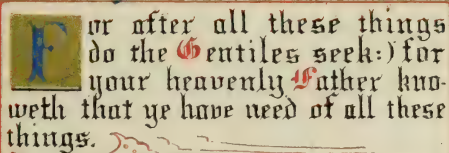 For after all these things
do the Gentiles seek:) for
your heavenly Father kno-
weth that ye have need of all these
things.